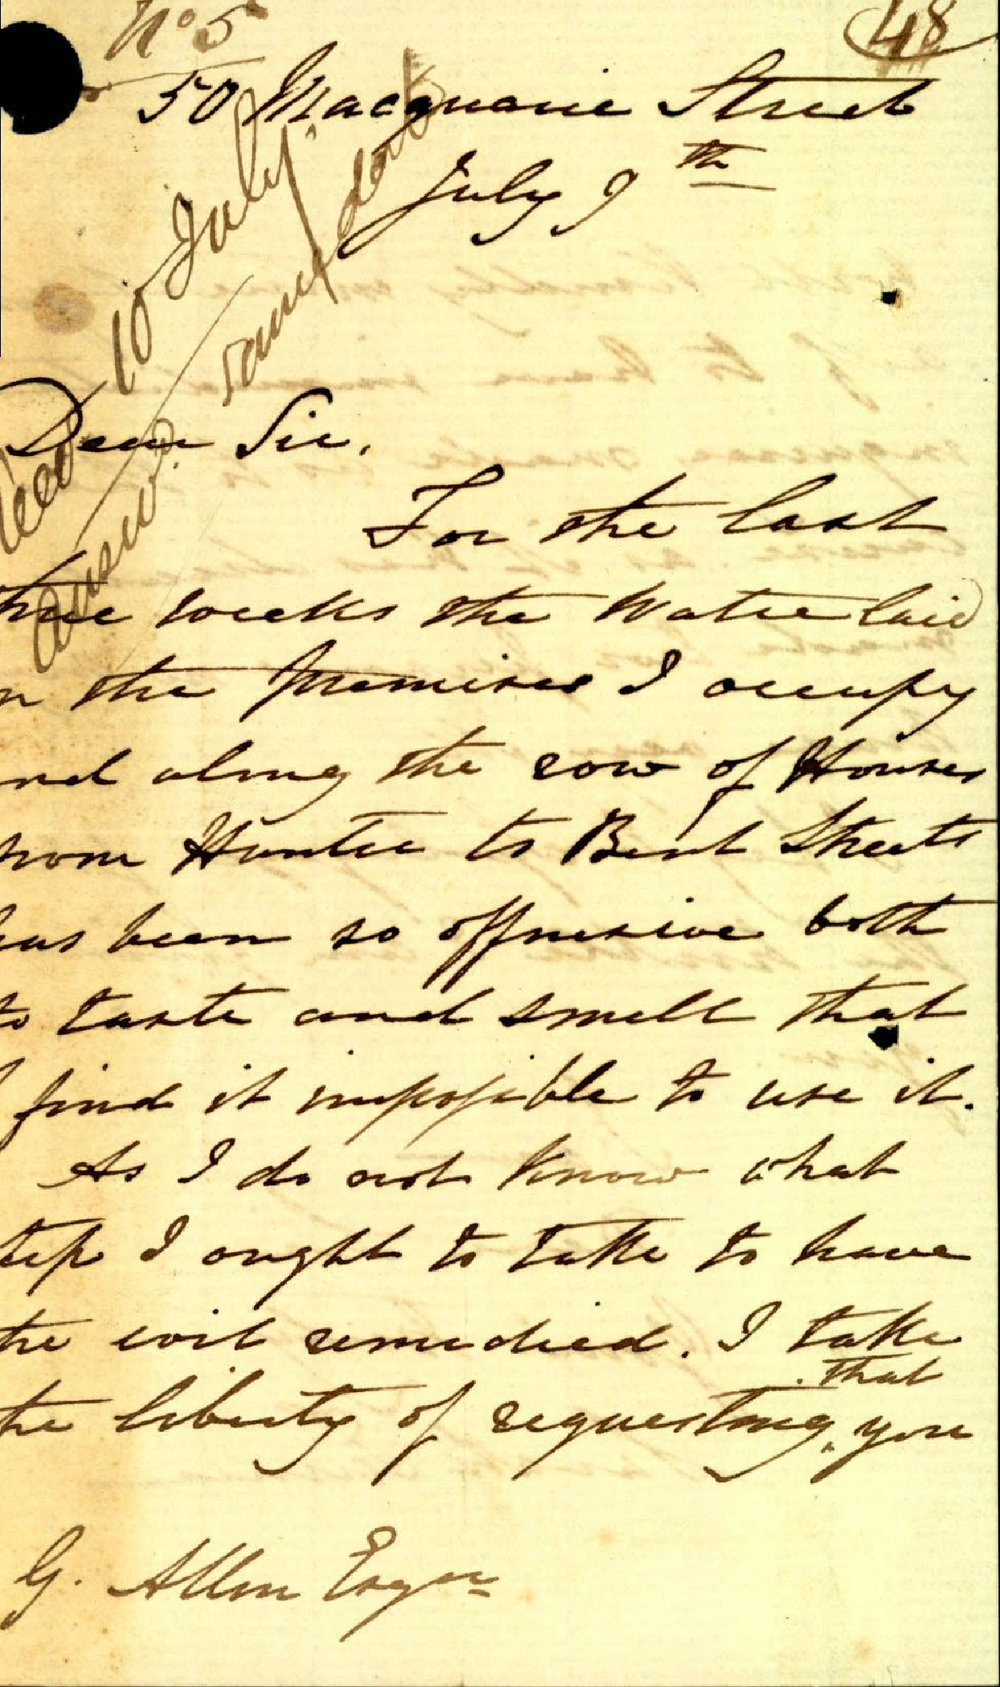 No 5
48
50 Macquarie Street
July 9th
Recd 10 July.
Answd. same date
Dear Sir.
For the last
three weeks the Water laid
on the Premises I occupy
and along the row of Houses
from Hunter to Bent Streets
has been so offensive both
to taste and smell that
I find it impossible to use it.
As I do not know what
step I ought to take to have
the evil remedied. I take
the liberty of requesting that you
G. Allen Esqre